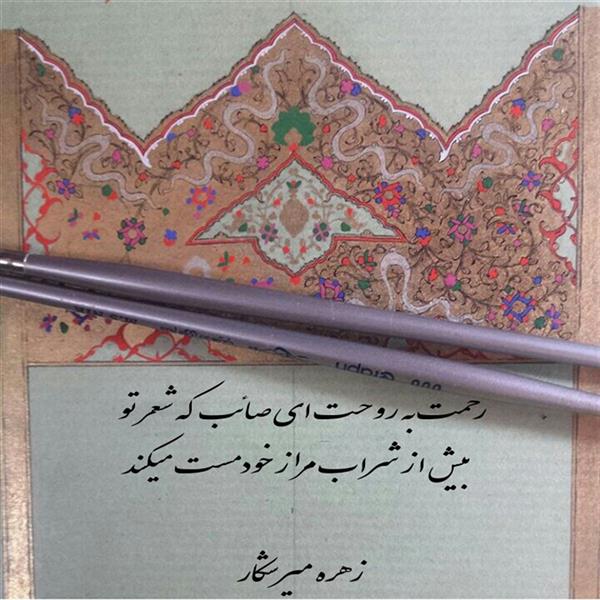 رحمت به روحت ای صائب که شعر تو
بیش از شراب مرا از خود مست میکند
زهره میرشکار